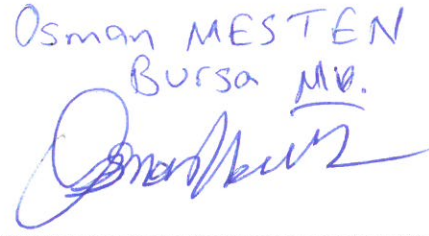 Osman MESTEN
Bursa Mv.